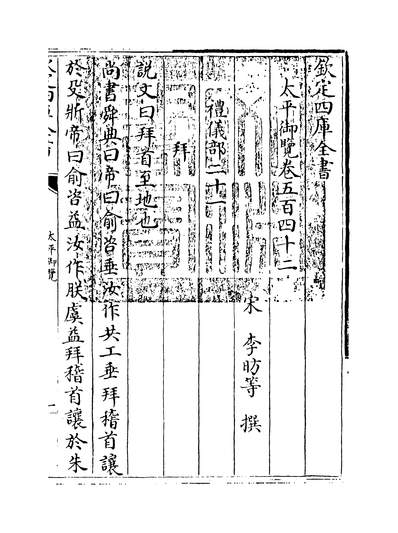 欽定四庫全書
太平御覽卷五百四十二
宋 李昉等 撰
禮儀部二十一
拜
說文曰拜首至地也
尚書舜典曰帝曰俞咨垂汝作共工垂拜稽首讓
於殳斨帝曰俞咨益汝作朕虞益拜稽首讓於朱
太平御覽
一